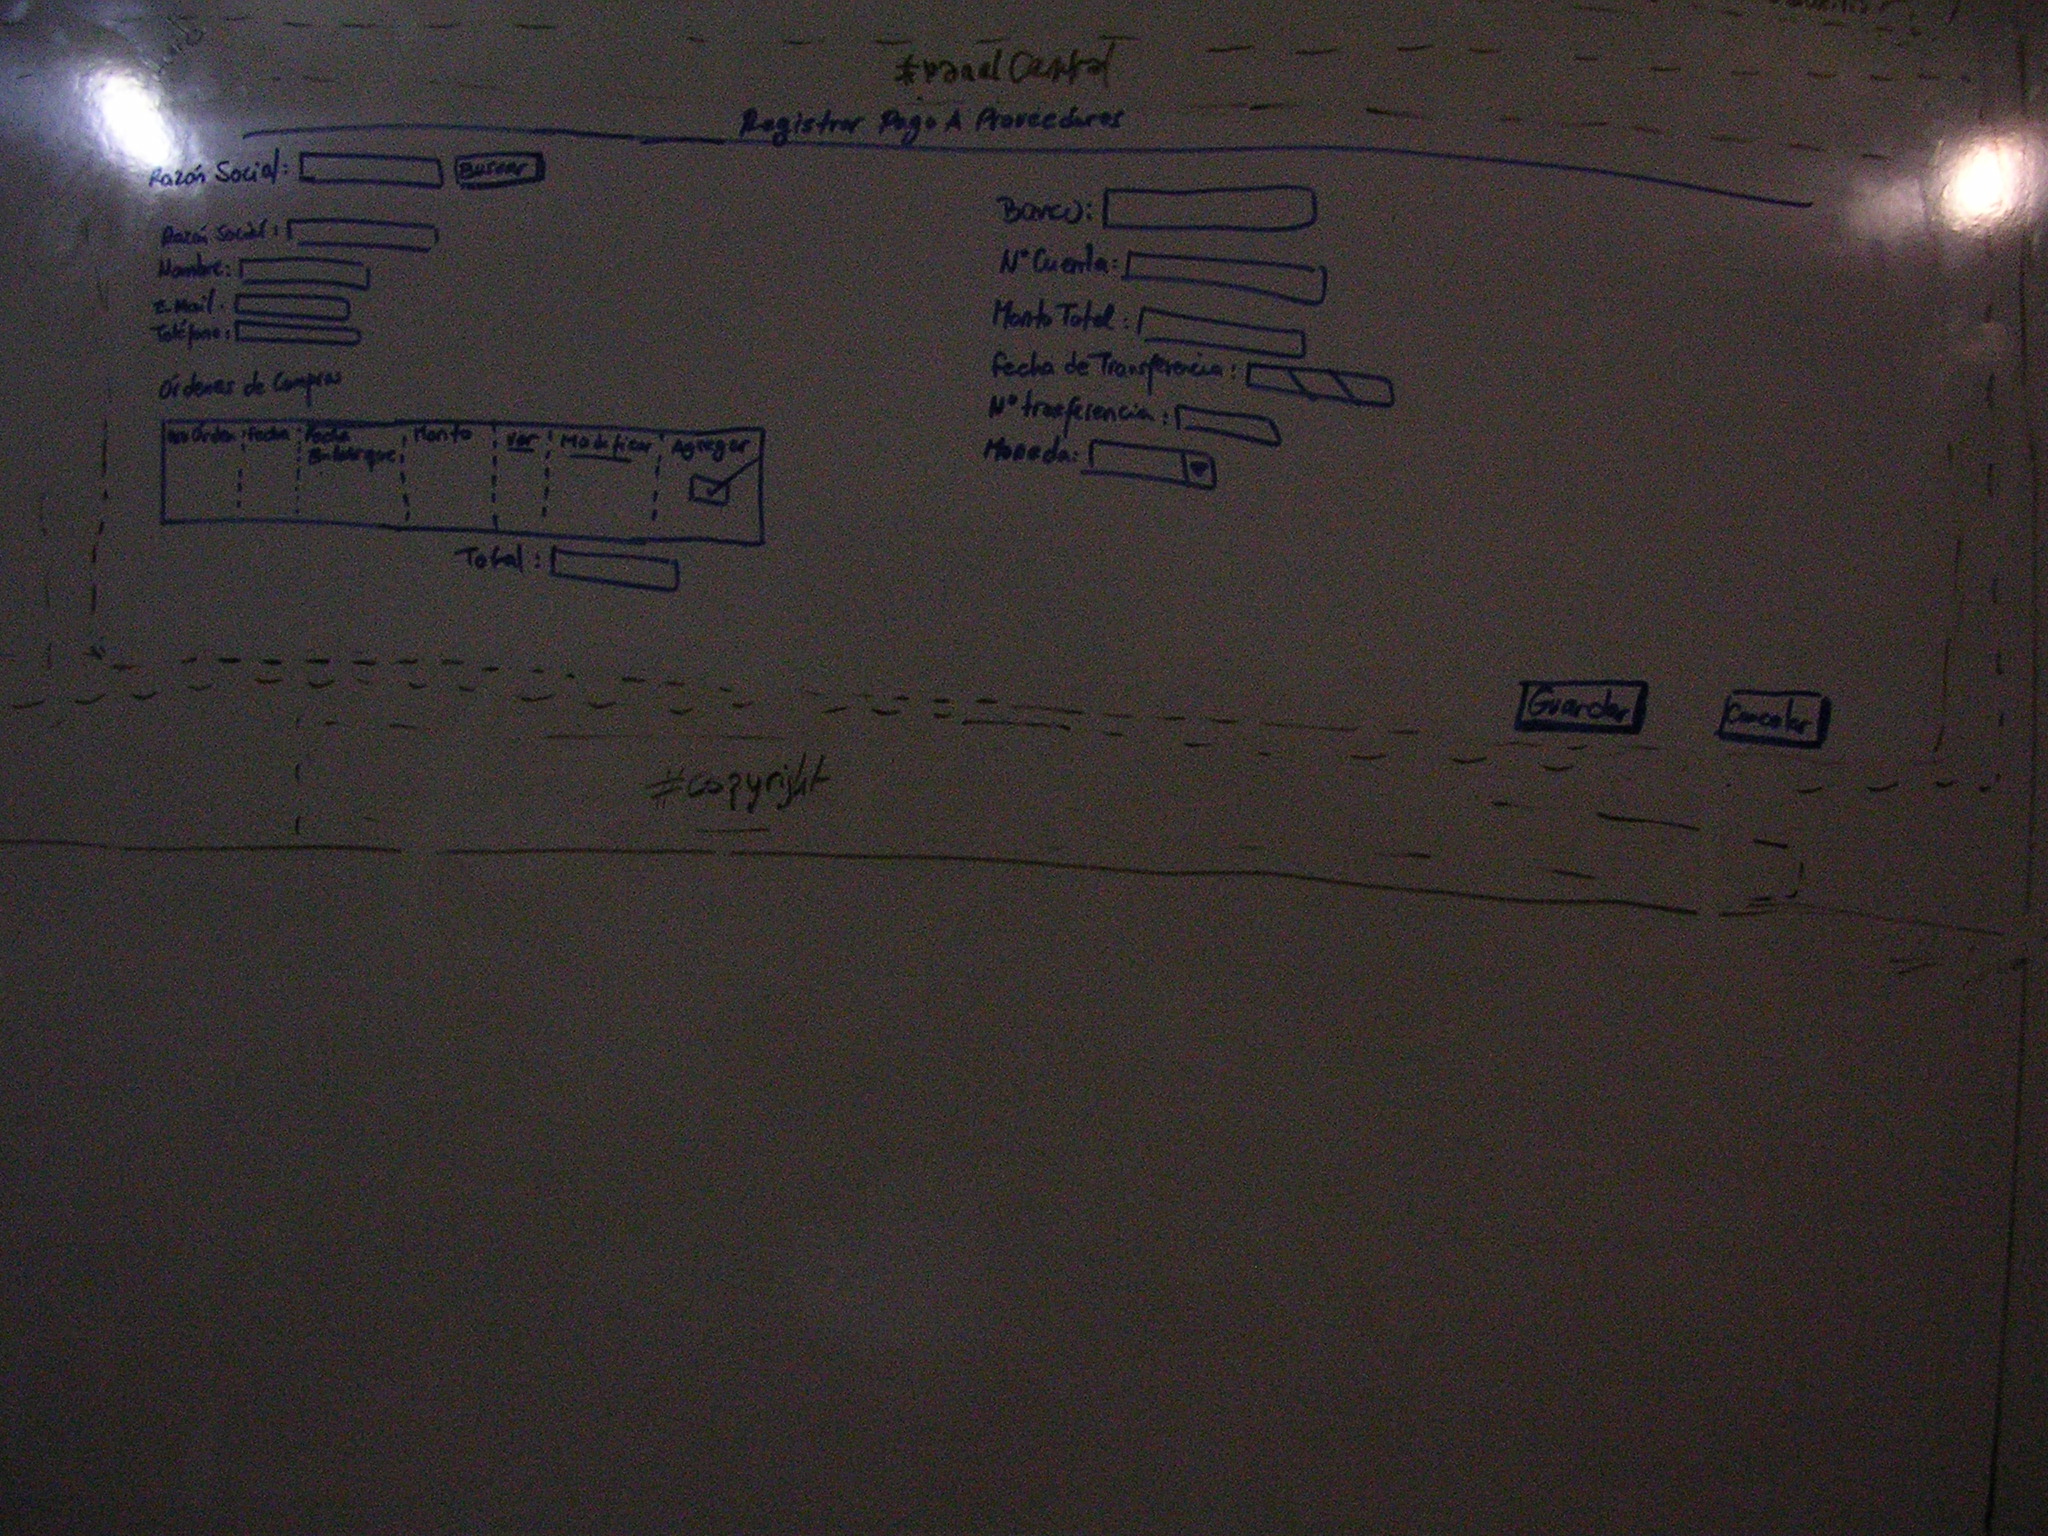 #panelCentral
Registrar Pago A Proveedores
Razón Social: Buscar
Razón Social:
Nombre:
E-Mail:
Teléfono:
Órdenes de Compras
Nro Orden Fecha Fecha Embarque Monto Ver Modificar Agregar
Total:
Banco:
N° Cuenta:
Monto Total:
Fecha de Transferencia:
N° trasferencia:
Moneda:
Guardar Cancelar
#copyright